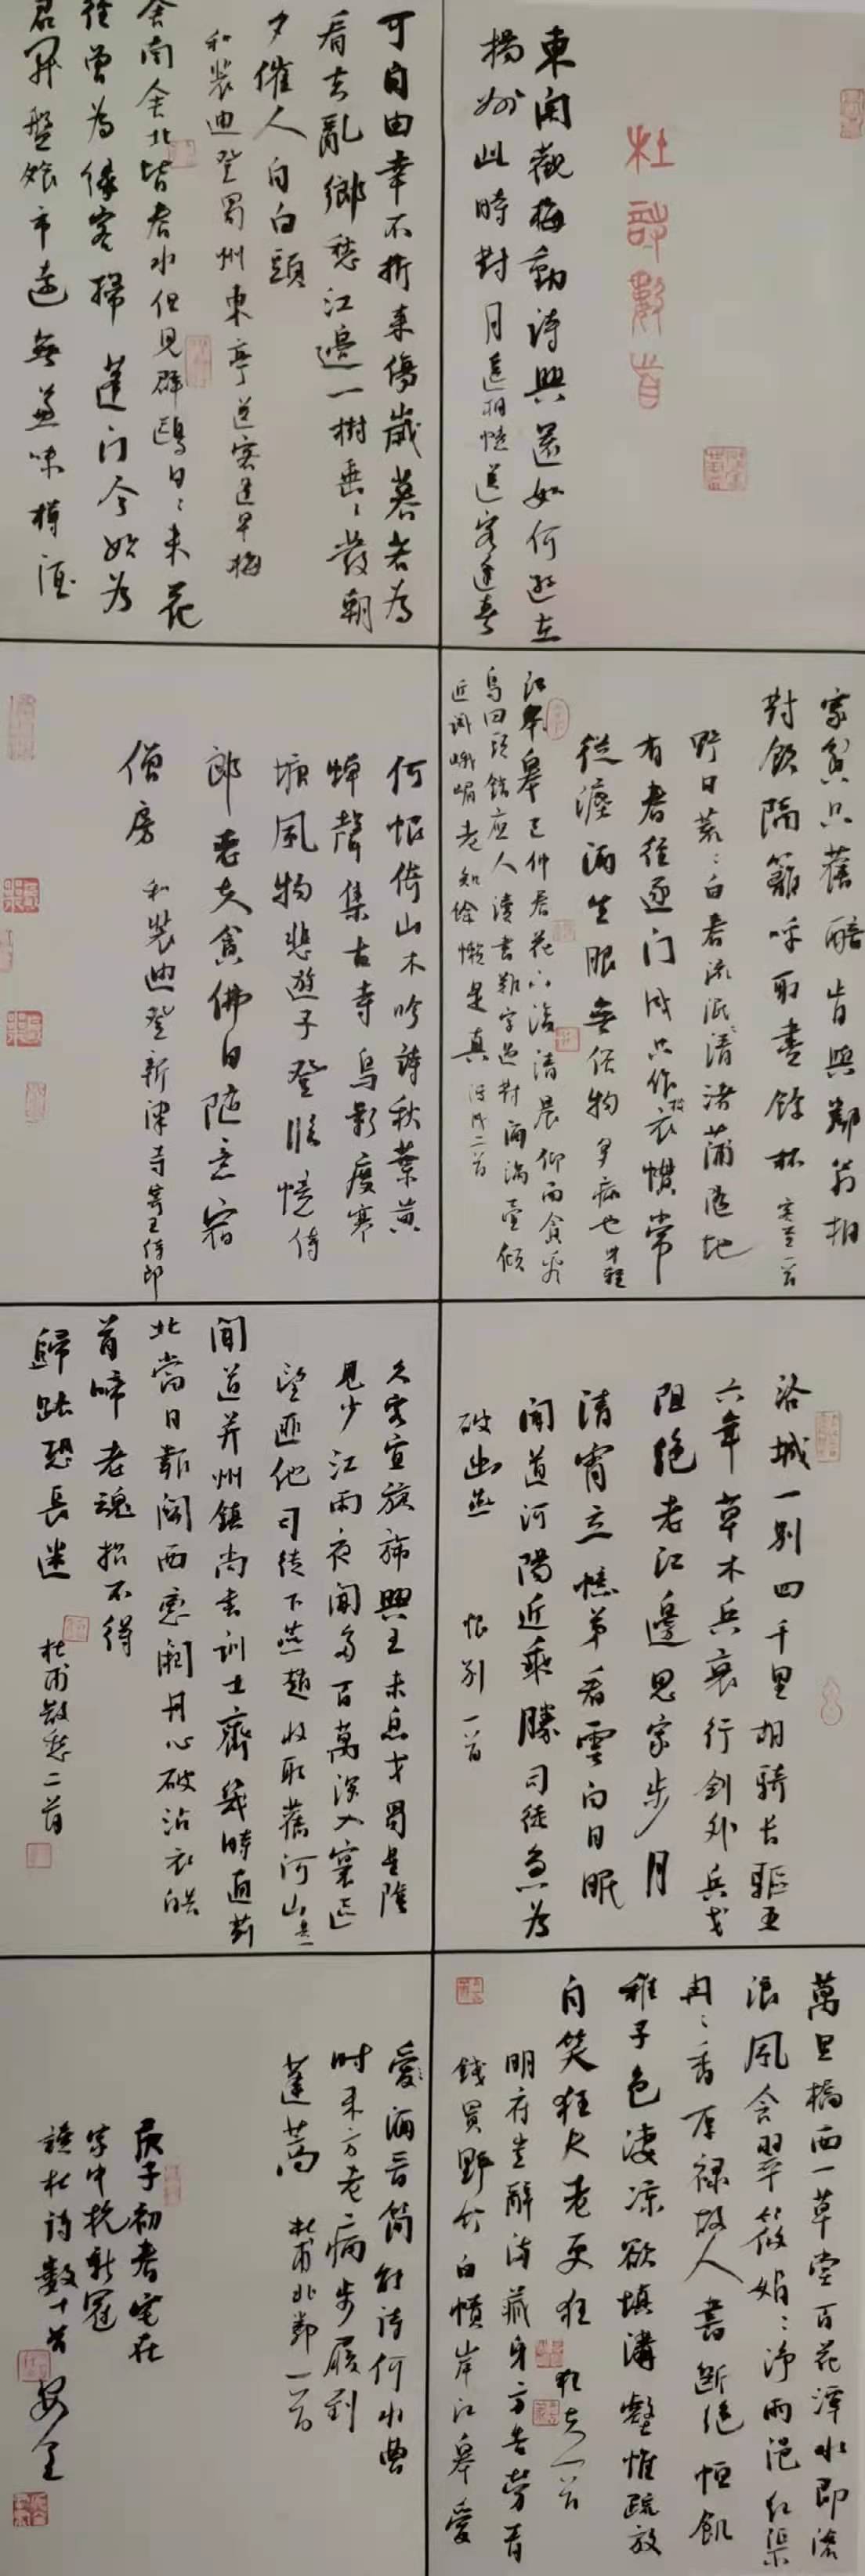 杜詩數首
東閣觀梅動詩興還如何遜在
揚州此時對月遙相憶送客逢春
可自由幸不折來傷歲暮若為
看去亂鄉愁江邊一樹垂〻發朝
夕催人自白頭
和裴迪登蜀州東亭送客逢早梅
舍南舍北皆春水但見群鷗日〻來花
徑曾為緣客掃蓬門今始為
君開盤飧市遠無兼味樽酒
家貧只舊醅肯與鄰翁相
對飲隔籬呼取盡餘杯 客至一首
野日荒〻白春流泯〻清渚蒲隨地
有春徑逐門成只作披衣慣常
從漉酒生眼無俗物多病也身輕
江皋已仲春花下復清晨仰面貪看
鳥回頭錯應人讀書難字過對酒滿壺傾
近識峨嵋老知余懶是真 漫成二首
何恨倚山木吟詩秋葉黃
蟬聲集古寺鳥影度寒
塘風物悲遊子登臨憶侍
郎老夫貪佛日隨意宿
僧房 和裴迪登新津寺寄王侍郎
洛城一別四千里胡騎長驅五
六年草木兵衰行劍外兵戈
阻絕老江邊思家步月
清宵立憶弟看雲白日眠
聞道河陽近乘勝司徒急為
破幽燕 恨別一首
久客宜旋旆興王未息戈蜀星陰
見少江雨夜聞多百萬深入寰區
望匪他司徒下燕趙收取舊河山
聞道并州鎮尚書訓士齊幾時通薊
北當日報關西戀闕丹心破沾衣皓
首啼老魂招不得
歸路恐長迷 杜甫散愁二首
萬里橋西一草堂百花潭水即滄
浪風含翠筱娟〻淨雨浥紅渠
冉〻香厚祿故人書斷絕恒飢
稚子色淒涼欲填溝壑惟疏放
自笑狂夫老更狂 狂夫一首
明府豈辭滿藏身方告勞青
錢買野竹白幘岸江皋愛
愛酒晉簡能詩何水曹
時來方老病步屧到
蓬蒿 杜甫北鄰一首
庚子初春宅在
家中抗新冠
讀杜詩數十首